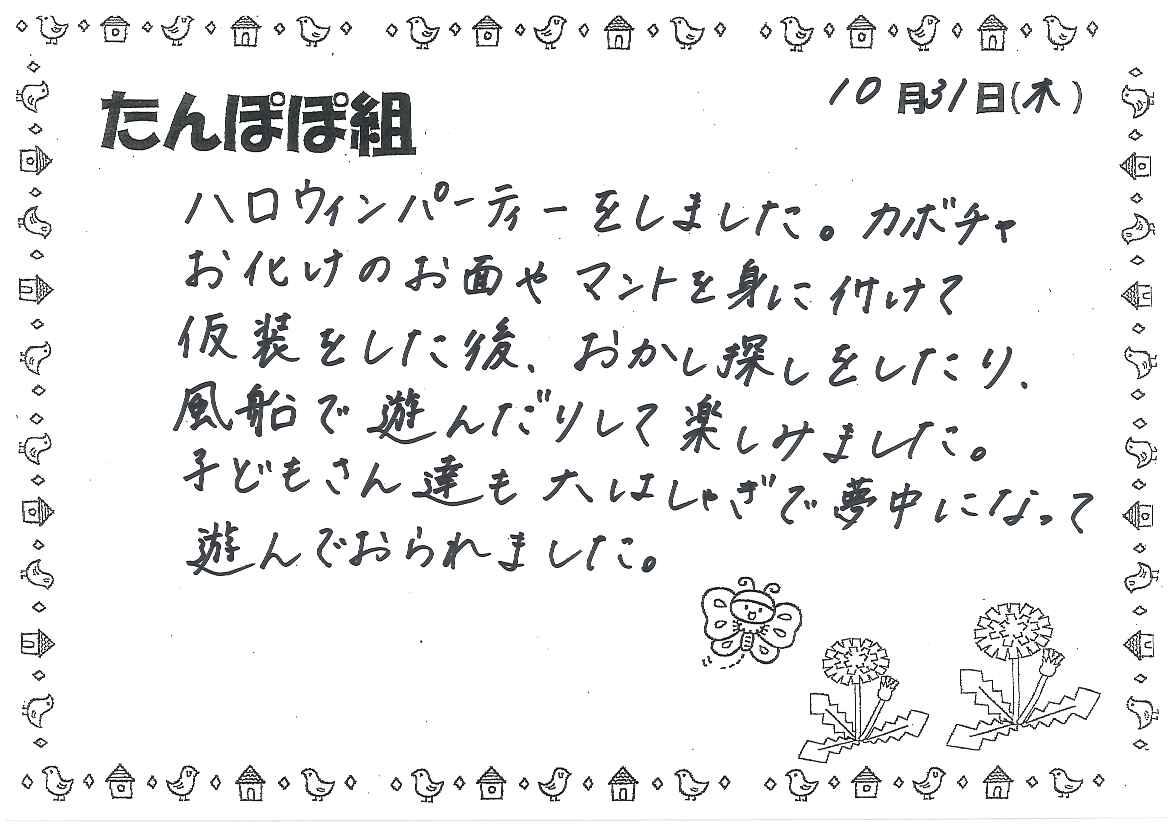 たんぽぽ組
10月31日(木)
ハロウィンパーティーをしました。カボチャ
お化けのお面やマントを身に付けて
仮装をした後、おかし探しをしたり、
風船で遊んだりして楽しみました。
子どもさん達も大はしゃぎで夢中になって
遊んでおられました。